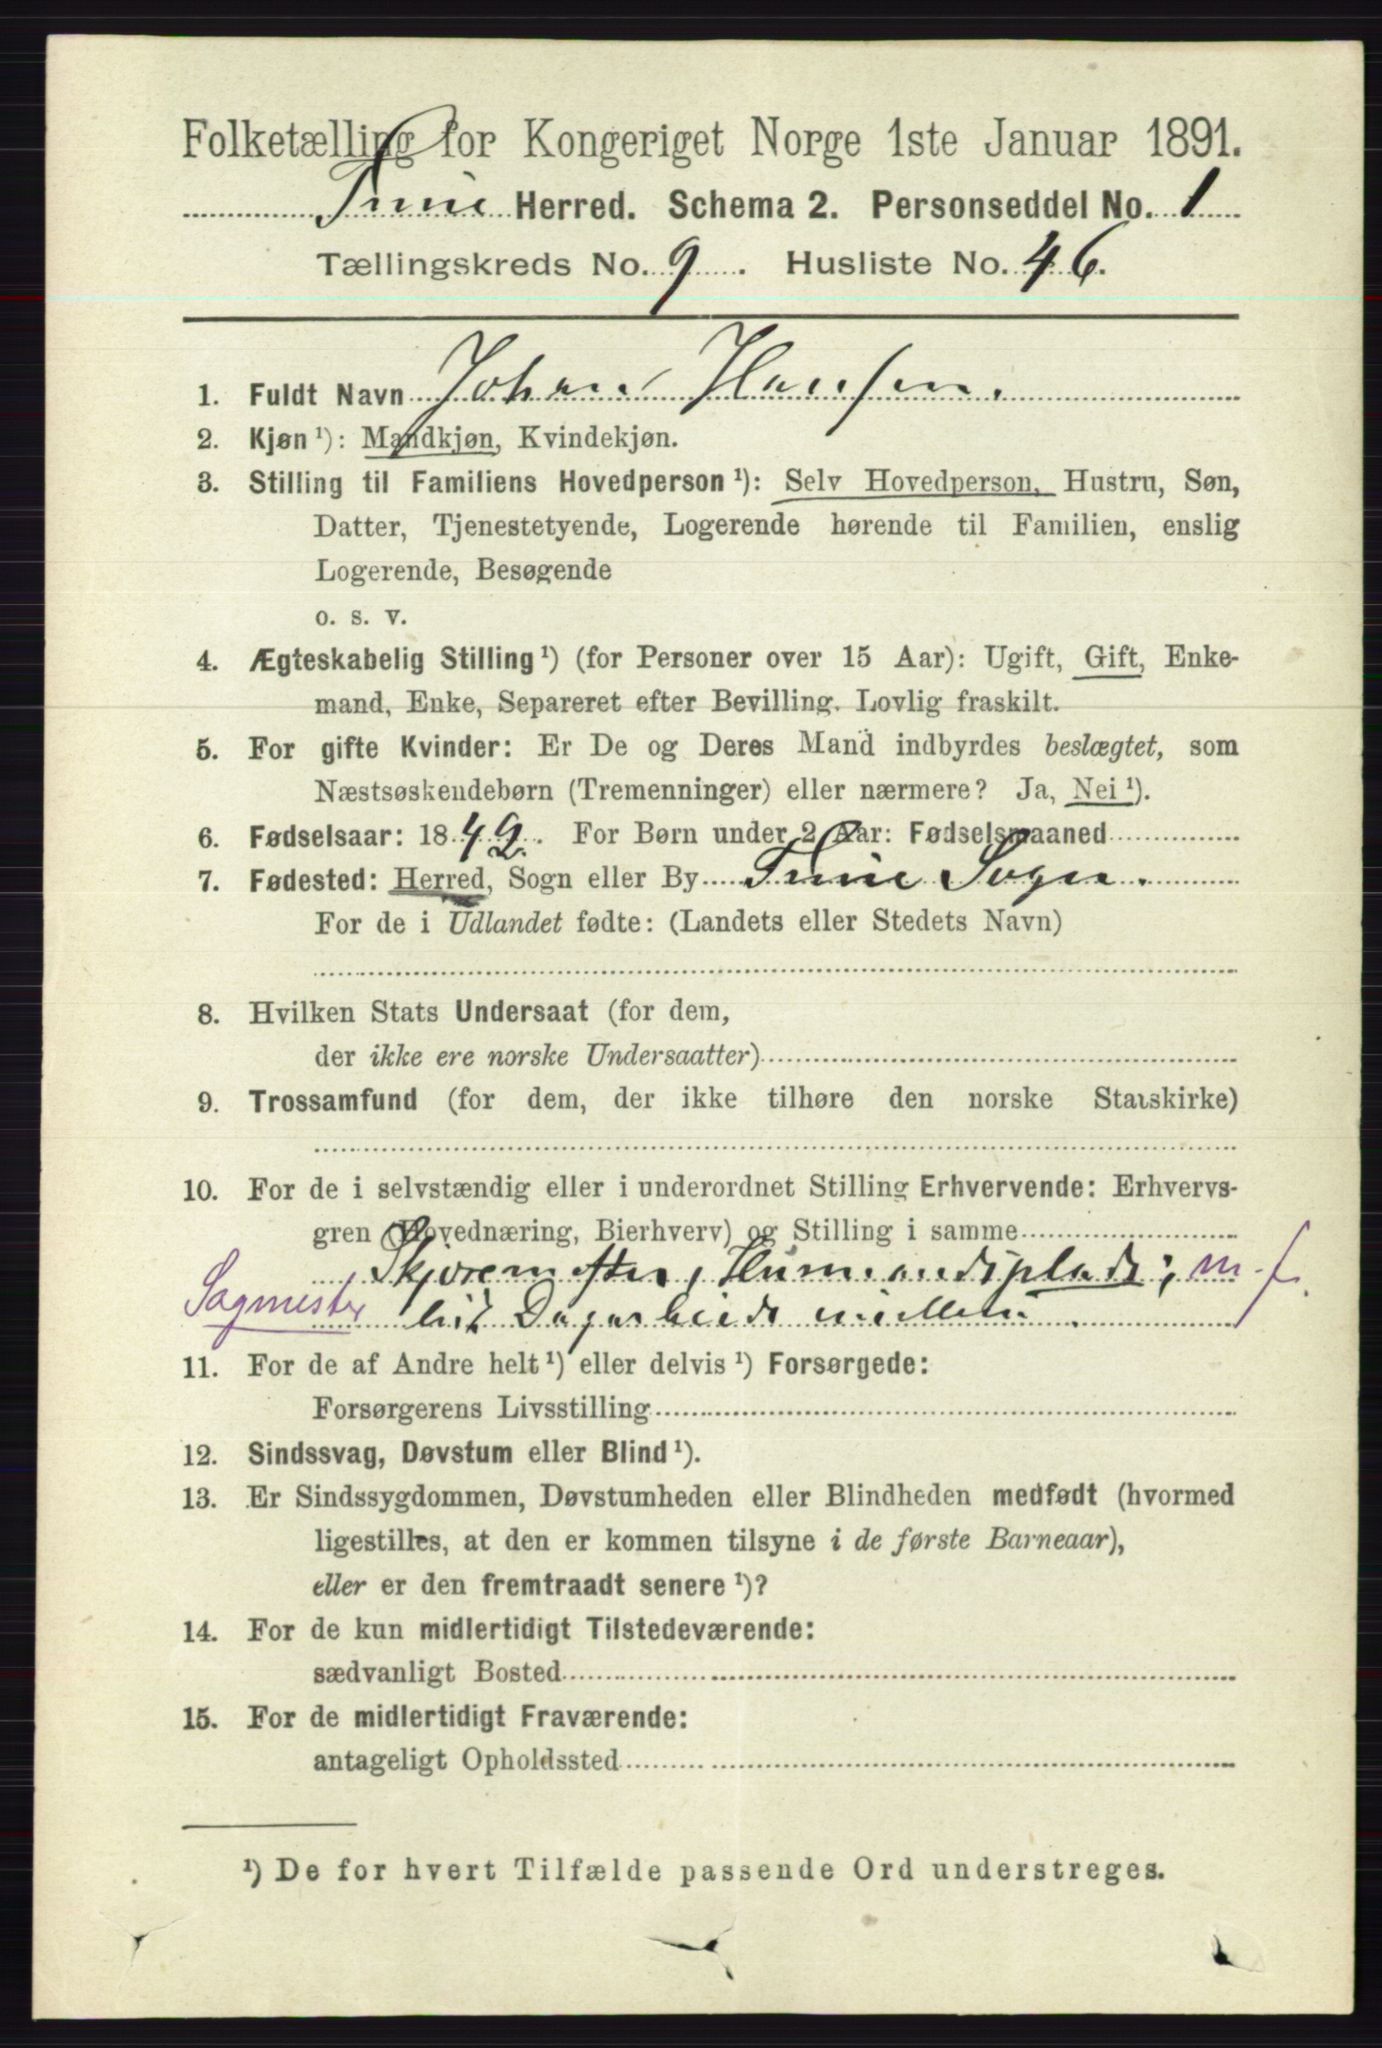 Folketælling for Kongeriget Norge 1ste Januar 1891.
Tune Herred. Schema 2. Personseddel No. 1
Tællingskreds No. 9. Husliste No. 46.
1. Fuldt Navn Johan Hansen.
2. Kjøn ¹): Mandkjøn, Kvindekjøn.
3. Stilling til Familiens Hovedperson ¹): Selv Hovedperson, Hustru, Søn,
Datter, Tjenestetyende, Logerende hørende til Familien, enslig
Logerende, Besøgende
o. s. v.
4. Ægteskabelig Stilling ¹) (for Personer over 15 Aar): Ugift, Gift, Enke-
mand, Enke, Separeret efter Bevilling. Lovlig fraskilt.
5. For gifte Kvinder: Er De og Deres Mand indbyrdes beslægtet, som
Næstsøskendebørn (Tremenninger) eller nærmere? Ja, Nei ¹).
6. Fødselsaar: 1849. For Børn under 2 Aar: Fødselsmaaned
7. Fødested: Herred, Sogn eller By Tune Sogn.
For de i Udlandet fødte: (Landets eller Stedets Navn)
8. Hvilken Stats Undersaat (for dem,
der ikke ere norske Undersaatter)
9. Trossamfund (for dem, der ikke tilhøre den norske Statskirke)
10. For de i selvstændig eller i underordnet Stilling Erhvervende: Erhvervs-
gren (Hovednæring, Bierhverv) og Stilling i samme
Skjæremester, Husmandsplads; m. f.
Sagmester lidt Dagarbeide
11. For de af Andre helt ¹) eller delvis ¹) Forsørgede:
Forsørgerens Livsstilling
12. Sindssvag, Døvstum eller Blind ¹).
13. Er Sindssygdommen, Døvstumheden eller Blindheden medfødt (hvormed
ligestilles, at den er kommen tilsyne i de første Barneaar),
eller er den fremtraadt senere ¹)?
14. For de kun midlertidigt Tilstedeværende:
sædvanligt Bosted
15. For de midlertidigt Fraværende:
antageligt Opholdssted
¹) De for hvert Tilfælde passende Ord understreges.